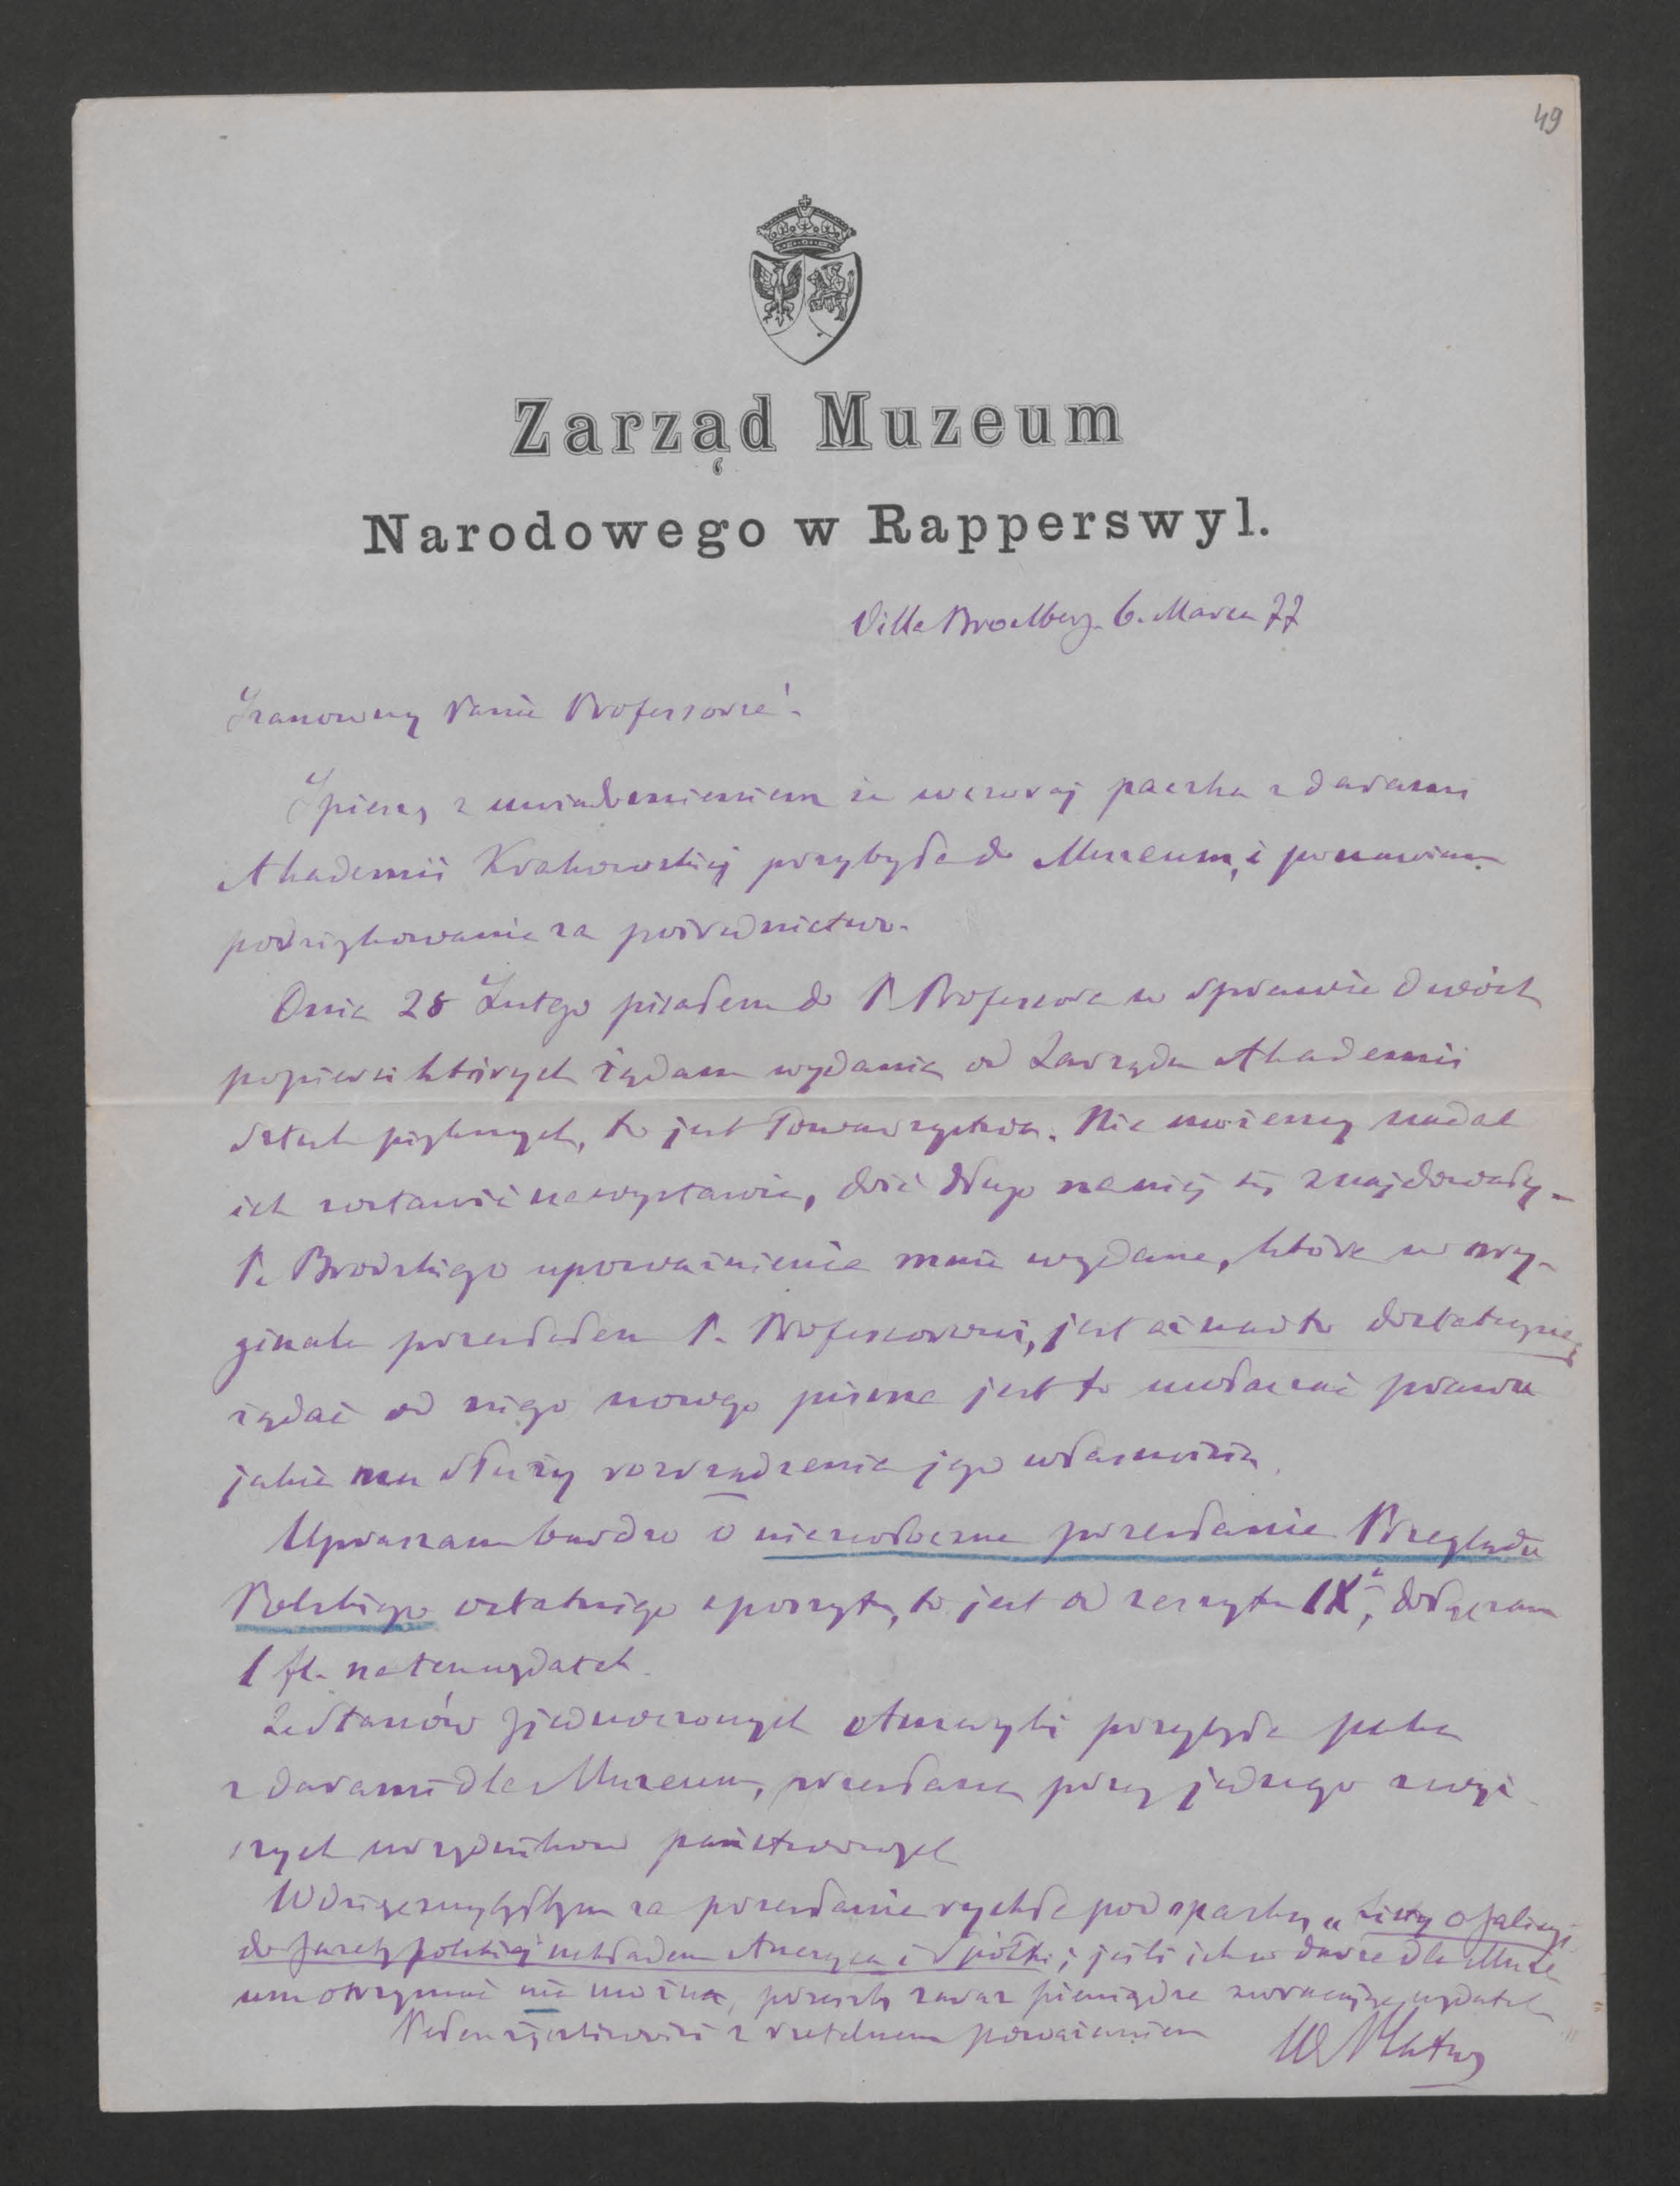 49
Zarząd Muzeum
Narodowego w Rapperswyl.
Villa Broelberg. 6. Marca 77
Szanowny Panie Professorze!
Spieszę z uwiadomieniem że wczoraj paczka z darami
Akademii Krakowskiej przybyła do Muzeum, i ponawiam
podziękowanie za pośrednictwo.
Dnia 28 Lutego pisałem do P. Professora w sprawie dwóch
popiersi których żądam wydania od Zarządu Akademii
Sztuk pięknych, to jest Towarzystwa. Nie możemy nadal
ich zostawić na wystawie, dość długo na niej się znajdowały.
P. Brodzkiego upoważnienie mnie wydane, które w ory-
ginale przesłałem P. Professorowi, jest aż nadto dostateczne
żądać od niego nowego pisma jest to uwłaczać prawu
jakie mu służy rozrządzenia jego własnością.
Upraszam bardzo o niezwłoczne przesłanie Przeglądu
Polskiego ostatniego zeszytu, to jest od zeszytu IX, dołączam
1 fl. na ten wydatek.
Ze Stanów Zjednoczonych Ameryki przybyła paka
z darami dla Muzeum, przesłana przez jednego z wyż-
szych urzędników państwowych
Wdzięcznybyłbym za przesłanie rychłe pod opaską „Listy o Galicyi
do Gazety polskiej nakładem Anczyca i Spółki; jeśli ich w darze dla Muze
um otrzymać nie można, prześlę zaraz pieniądze zwracające wydatek
z rzetelnem poważaniem
Wł Plater